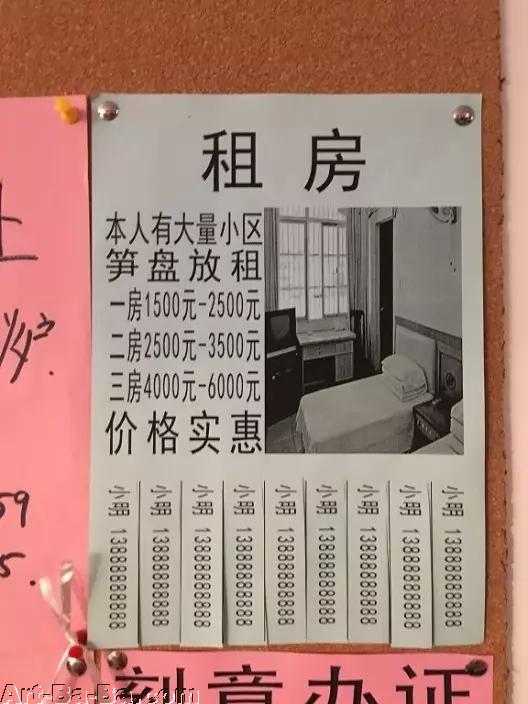 租房
本人有大量小区
笋盘放租
一房1500元-2500元
二房2500元-3500元
三房4000元-6000元
价格实惠
小明 13888888888
小明 13888888888
小明 13888888888
小明 13888888888
小明 13888888888
小明 13888888888
小明 13888888888
小明 13888888888
小明 13888888888
上
炉.
59
5.
刻章办证
Art-Ba-Ba.com